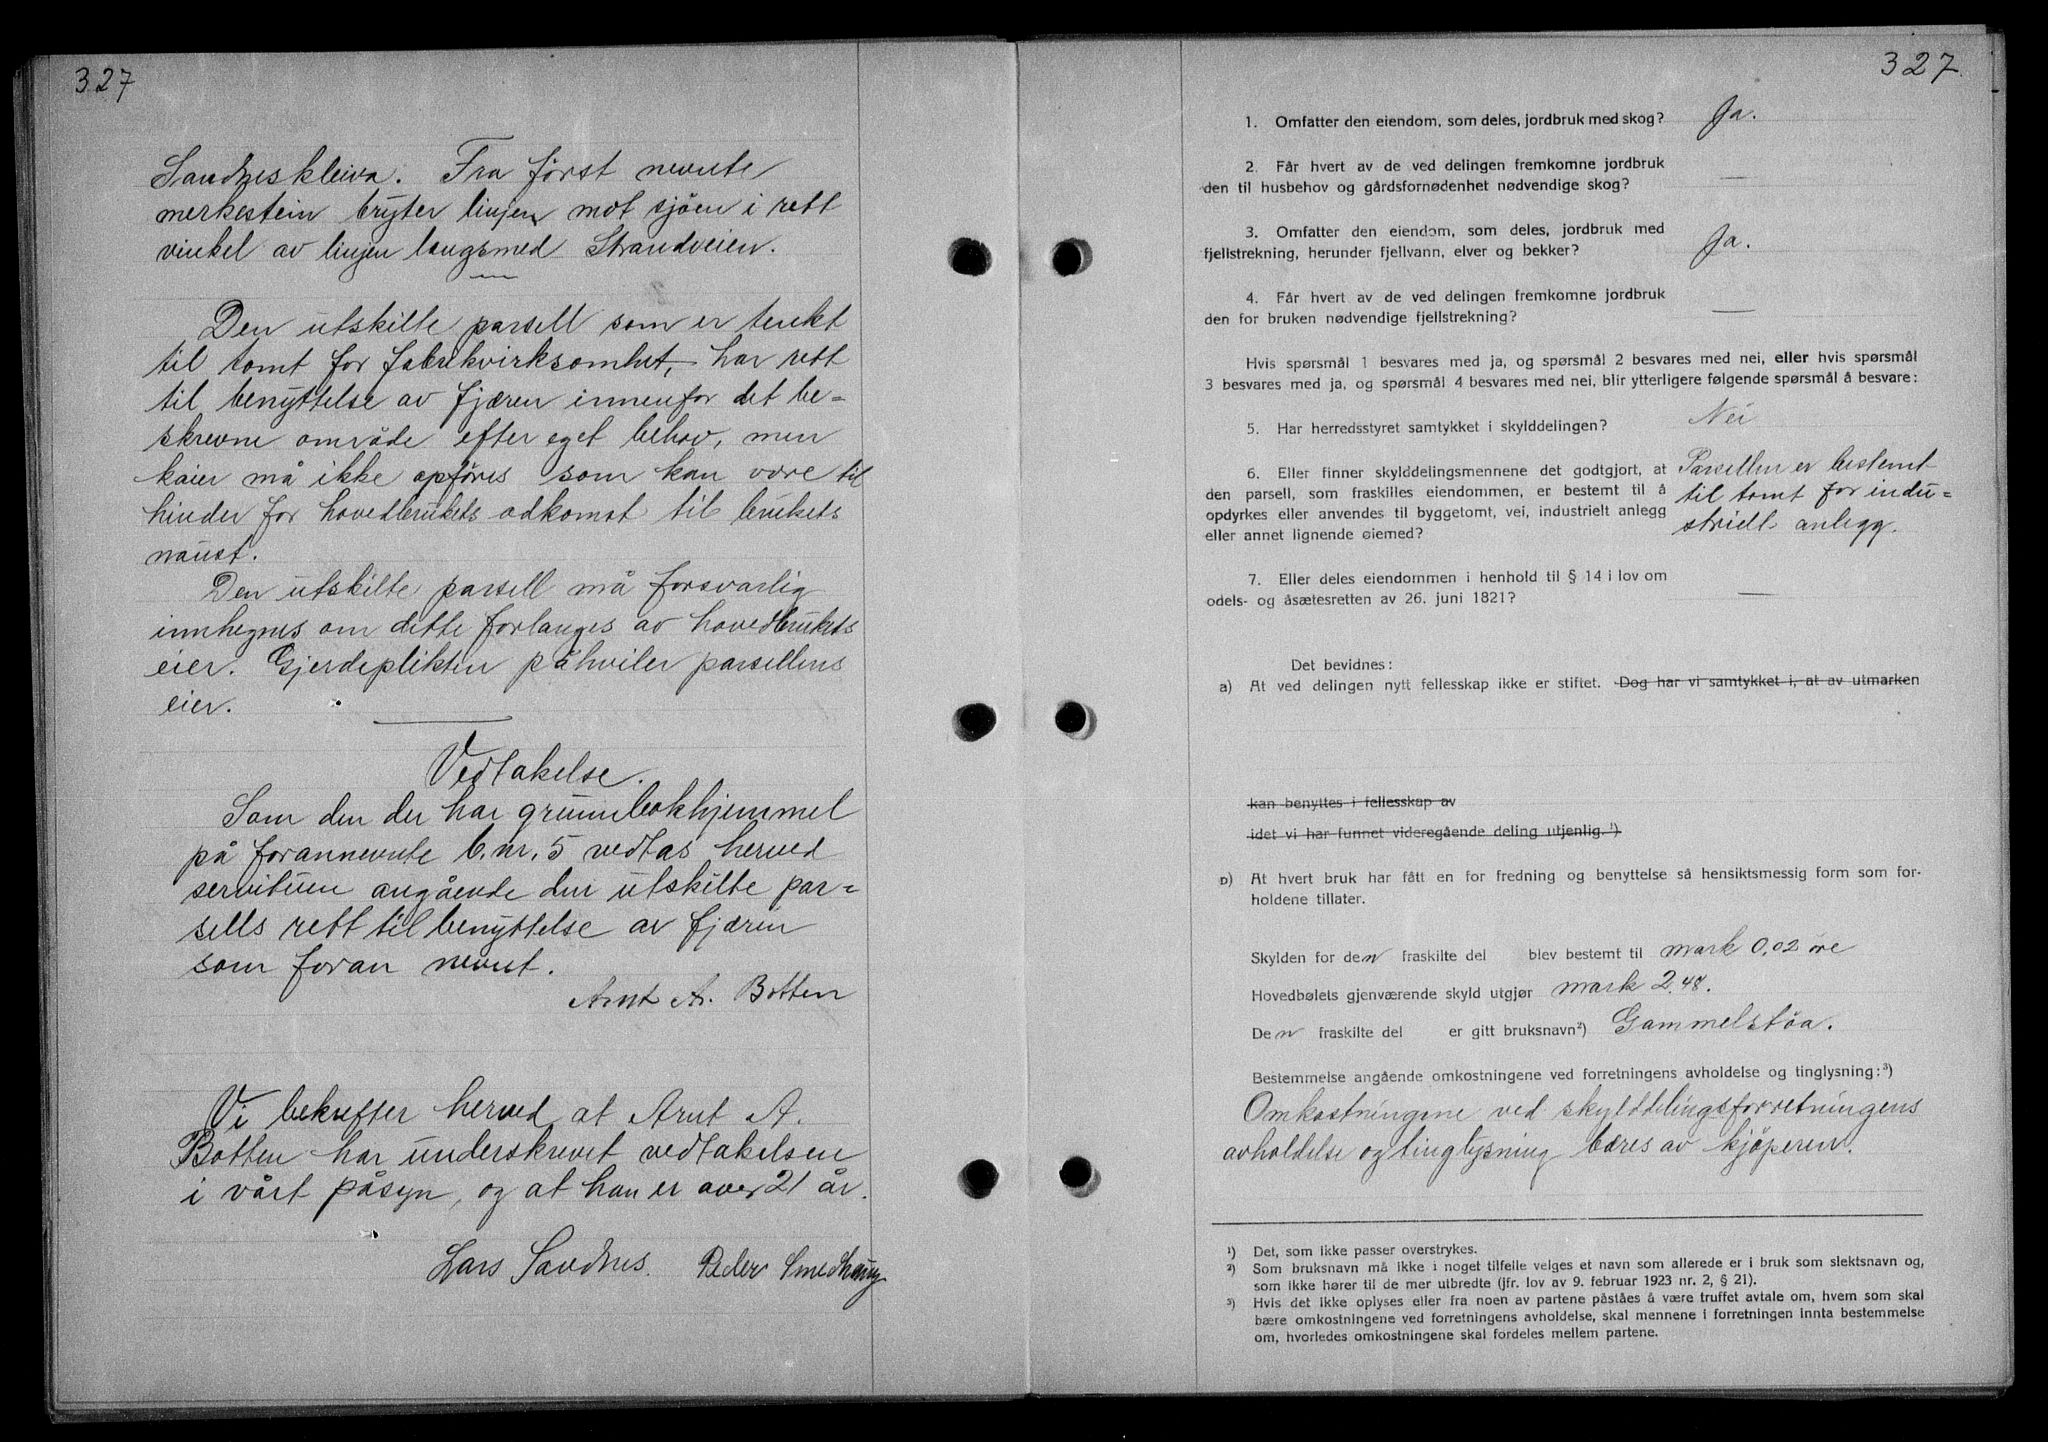 327
Sandneskleiva. Fra først nevnte
merkestein bryter linjen mot sjøen i rett
vinkel av linjen langsmed Strandveien.
Den utskilte parsell som er tenkt
til tomt for fabrikvirksomhet, har rett
til benyttelse av fjæren innenfor det be=
skrevne område efter eget behov, men
kaier må ikke opføres som kan være til
hinder for hovedbrukets adkomst til brukets
naust.
Den utskilte parsell må forsvarlig
innhegnes om dette forlanges av hovedbrukets
eier. Gjerdeplikten påhviler parsellens
eier.
Vedtakelse.
Som den der har grunnbokhjemmel
på forannevnte b.nr. 5 vedtas herved
servituen angående den utskilte par=
sells rett til benyttelse av fjæren
som foran nevnt.
Arnt A. Botten
Vi bekrefter herved at Arnt A.
Botten har underskrevet vedtakelsen
i vårt påsyn, og at han er over 21 år.
Lars Sandnes. Peder Smedhaug
327.
1. Omfatter den eiendom, som deles, jordbruk med skog? Ja.
2. Får hvert av de ved delingen fremkomne jordbruk
den til husbehov og gårdsfornødenhet nødvendige skog? —
3. Omfatter den eiendom, som deles, jordbruk med
fjellstrekning, herunder fjellvann, elver og bekker? Ja.
4. Får hvert av de ved delingen fremkomne jordbruk
den for bruken nødvendige fjellstrekning? —
Hvis spørsmål 1 besvares med ja, og spørsmål 2 besvares med nei, eller hvis spørsmål
3 besvares med ja, og spørsmål 4 besvares med nei, blir ytterligere følgende spørsmål å besvare:
5. Har herredsstyret samtykket i skylddelingen? Nei
6. Eller finner skylddelingsmennene det godtgjort, at Parsellen er bestemt
den parsell, som fraskilles eiendommen, er bestemt til å til tomt for indu=
opdyrkes eller anvendes til byggetomt, vei, industrielt anlegg strielt anlegg.
eller annet lignende øiemed?
7. Eller deles eiendommen i henhold til § 14 i lov om
odels- og åsætesretten av 26. juni 1821? —
Det bevidnes:
a) At ved delingen nytt fellesskap ikke er stiftet. Dog har vi samtykket i, at av utmarken
kan benyttes i fellesskap av
idet vi har funnet videregående deling utjenlig.¹)
b) At hvert bruk har fått en for fredning og benyttelse så hensiktsmessig form som for-
holdene tillater.
Skylden for den fraskilte del blev bestemt til mark 0,02 øre
Hovedbølets gjenværende skyld utgjør mark 2.48.
Den fraskilte del er gitt bruksnavn²) Gammelstøa.
Bestemmelse angående omkostningene ved forretningens avholdelse og tinglysning:³)
Omkostningene ved skylddelingsforretningens
avholdelse og tinglysning bæres av kjøperen.
¹) Det, som ikke passer overstrykes.
²) Som bruksnavn må ikke i noget tilfelle velges et navn som allerede er i bruk som slektsnavn og,
som ikke hører til de mer utbredte (jfr. lov av 9. februar 1923 nr. 2, § 21).
³) Hvis det ikke oplyses eller fra noen av partene påståes å være truffet avtale om, hvem som skal
bære omkostningene ved forretningens avholdelse, skal mennene i forretningen innta bestemmelse
om, hvorledes omkostningene skal fordeles mellem partene.